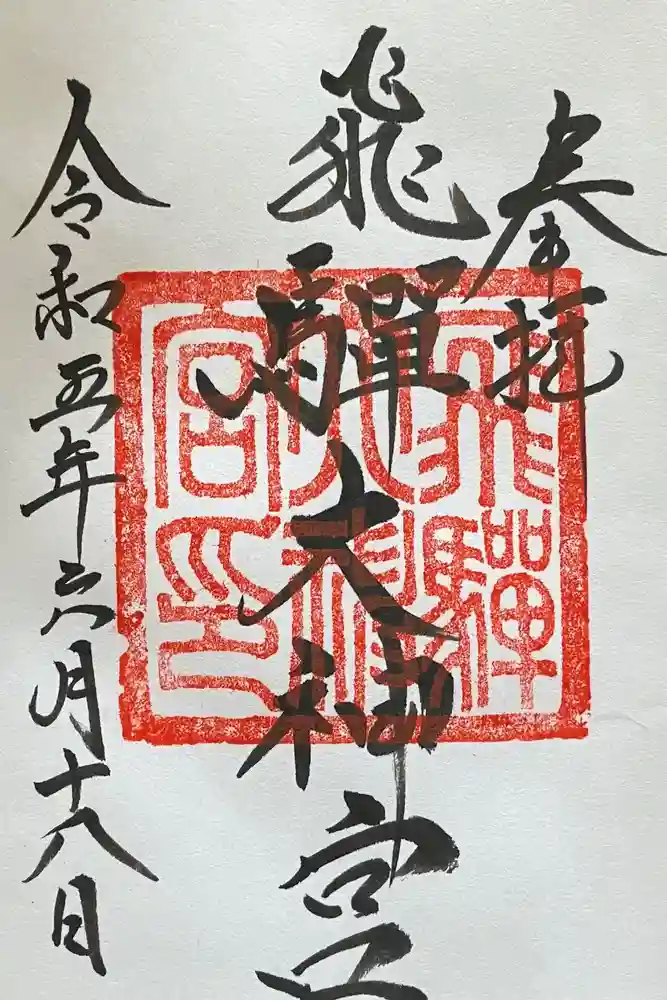 奉拝
飛騨大神宮
令和五年六月十八日
飛騨大神宮印